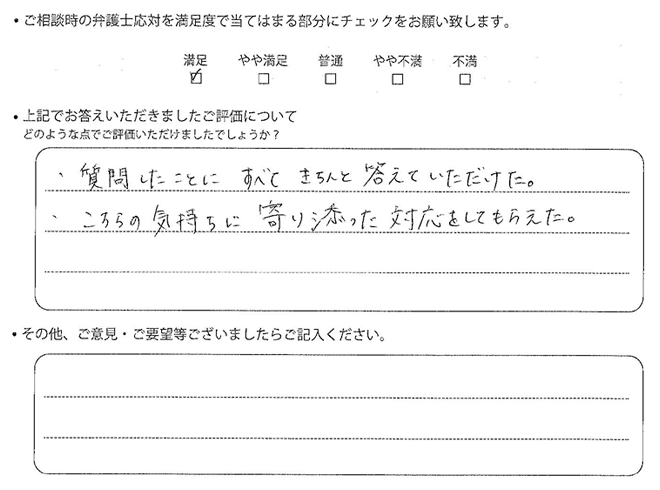 • ご相談時の弁護士応対を満足度で当てはまる部分にチェックをお願い致します。
満足 やや満足 普通 やや不満 不満
☑ ☐ ☐ ☐ ☐
• 上記でお答えいただきましたご評価について
どのような点でご評価いただけましたでしょうか?
・質問したことに すべて きちんと 答えていただけた。
・こちらの気持ちに 寄り添った 対応をしてもらえた。
• その他、ご意見・ご要望等ございましたらご記入ください。